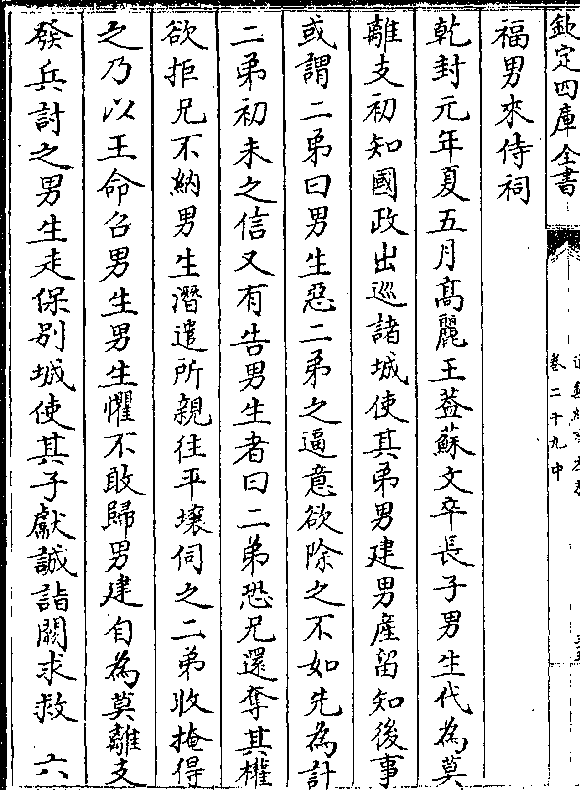 欽定四庫全書
卷二十九中
福男來侍祠
乾封元年夏五月高麗王葢蘇文卒長子男生代為莫
離支初知國政出巡諸城使其弟男建男產留知後事
或謂二弟曰男生惡二弟之逼意欲除之不如先為計
二弟初未之信又有告男生者曰二弟恐兄還奪其權
欲拒兄不納男生潛遣所親往平壤伺之二弟收掩得
之乃以王命召男生男生懼不敢歸男建自為莫離支
發兵討之男生走保别城使其子獻誠詣闕求救　六